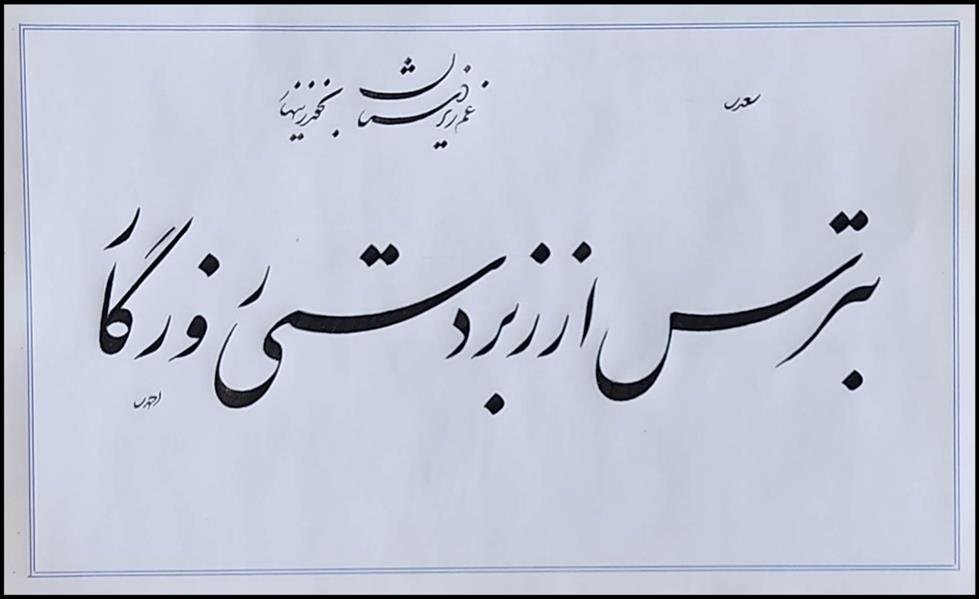 سعدی
غم زیردستان بخور زینهار
بترس از زبردستی روزگار